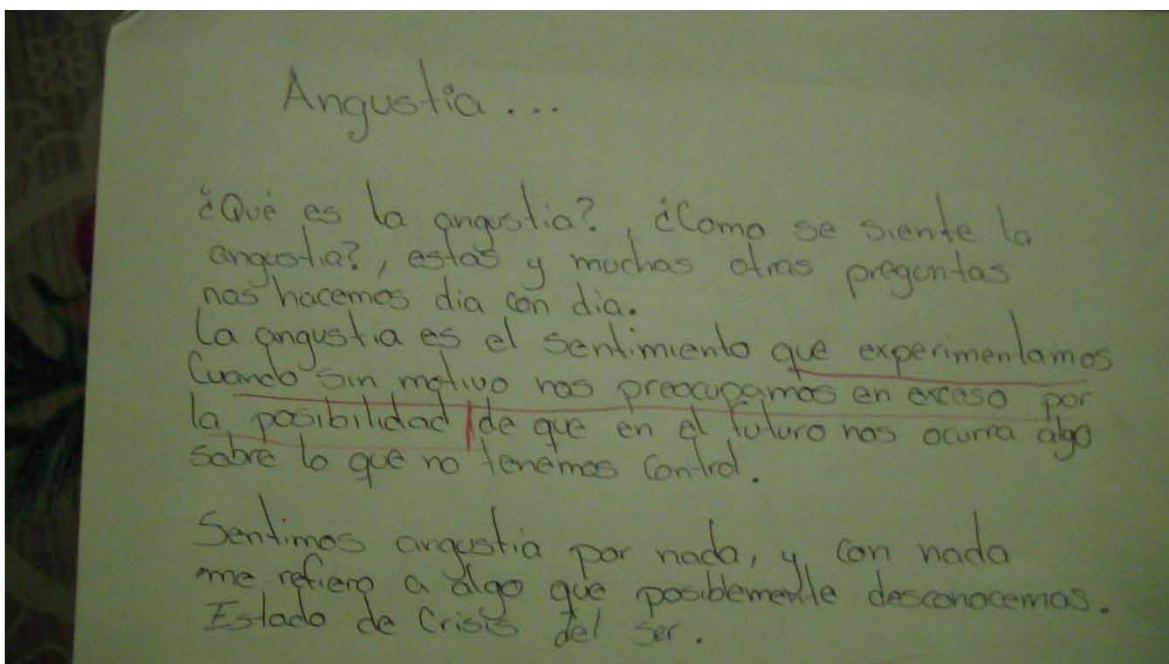 Angustia...
¿Qué es la angustia?, ¿Como se siente la
angustia?, estas y muchas otras preguntas
nos hacemos dia con dia.
La angustia es el sentimiento que experimentamos
Cuando sin motivo nos preocupamos en exceso por
la posibilidad de que en el futuro nos ocurra algo
sobre lo que no tenemos control.
Sentimos angustia por nada, y con nada
me refiero a algo que posiblemente desconocemos.
Estado de Crisis del ser.